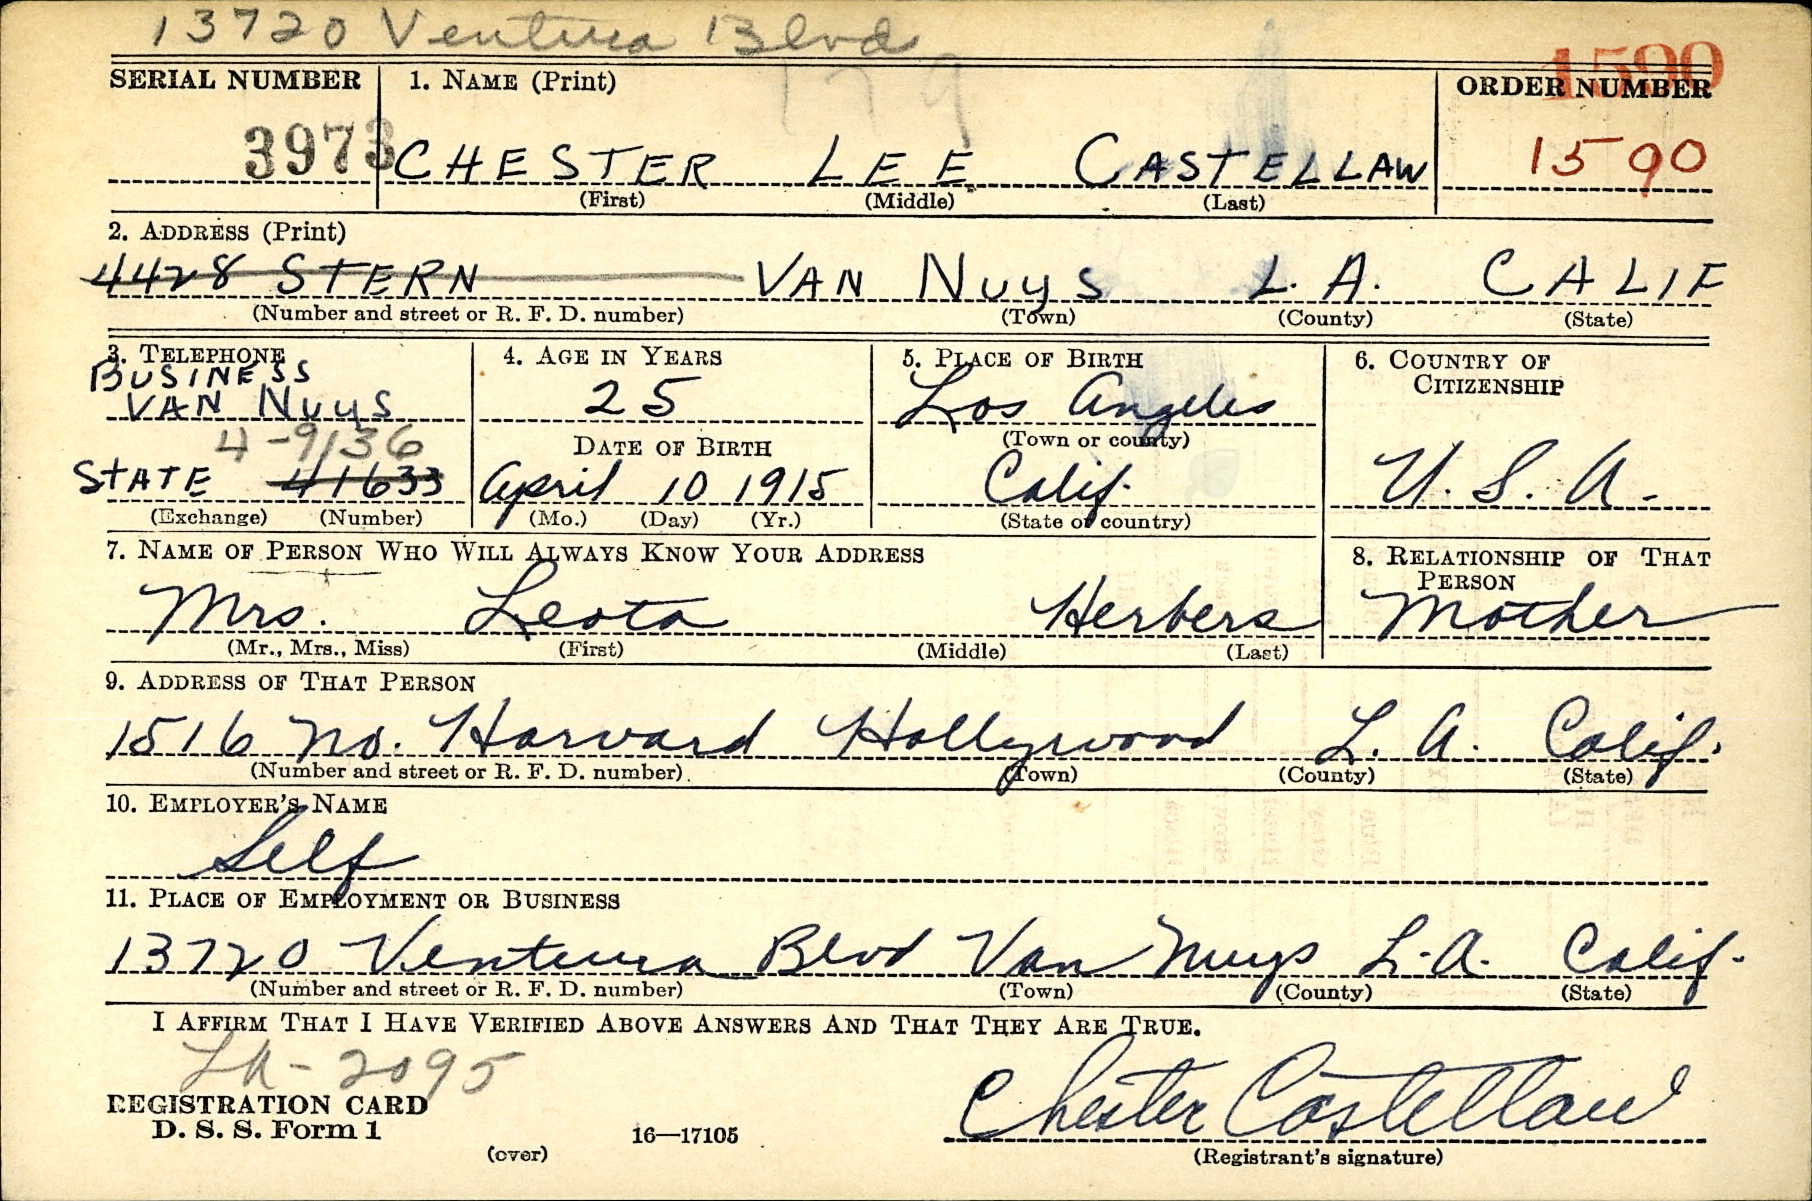 13720 Ventura Blvd
179
1590
SERIAL NUMBER 1. NAME (Print) ORDER NUMBER
3973 CHESTER LEE CASTELLAW 1590
(First) (Middle) (Last)
2. ADDRESS (Print)
4428 STERN VAN NUYS L.A. CALIF
(Number and street or R. F. D. number) (Town) (County) (State)
3. TELEPHONE 4. AGE IN YEARS 5. PLACE OF BIRTH 6. COUNTRY OF CITIZENSHIP
BUSINESS
VAN NUYS 25 Los Angeles
4-9136 DATE OF BIRTH (Town or county)
STATE 41633 April 10 1915 Calif. U. S. A.
(Exchange) (Number) (Mo.) (Day) (Yr.) (State or country)
7. NAME OF PERSON WHO WILL ALWAYS KNOW YOUR ADDRESS 8. RELATIONSHIP OF THAT PERSON
Mrs. Leota Herbers Mother
(Mr., Mrs., Miss) (First) (Middle) (Last)
9. ADDRESS OF THAT PERSON
1516 No. Harvard Hollywood L. A. Calif.
(Number and street or R. F. D. number) (Town) (County) (State)
10. EMPLOYER'S NAME
Self
11. PLACE OF EMPLOYMENT OR BUSINESS
13720 Ventura Blvd Van Nuys L.A. Calif.
(Number and street or R. F. D. number) (Town) (County) (State)
I AFFIRM THAT I HAVE VERIFIED ABOVE ANSWERS AND THAT THEY ARE TRUE.
LA-2095
REGISTRATION CARD Chester Castellaw
D. S. S. Form 1 16—17105
(over) (Registrant's signature)